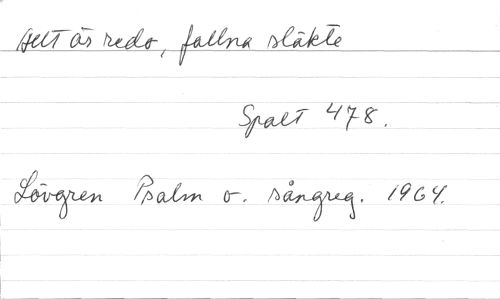 Allt är redo, fallna släkte
Spalt 478.
Lövgren Psalm o. sångreg. 1964.